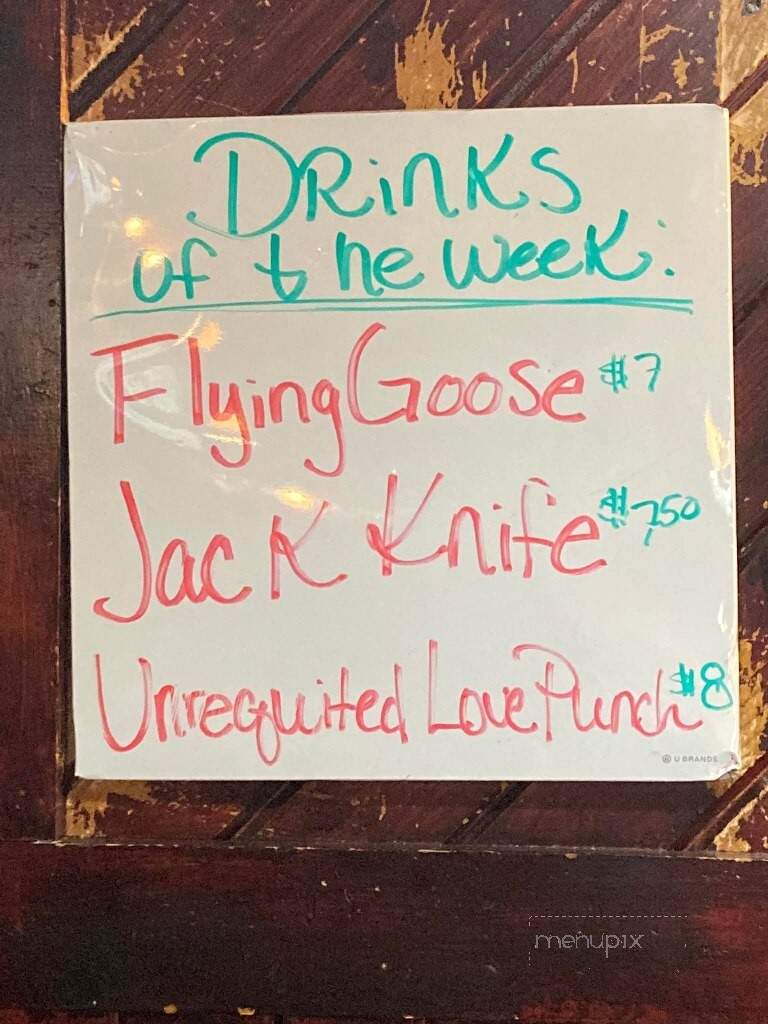 DRinKS
of the week:
Flying Goose $7
Jack Knife $7.50
Unrequited Love Punch $8
® U BRANDS
menupix